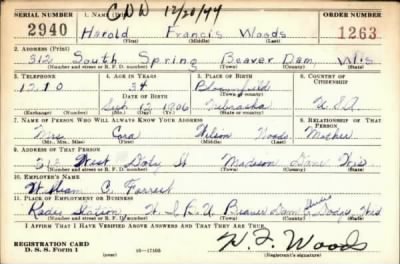 SERIAL NUMBER 1. NAME (Print) CDW 12/20/44 ORDER NUMBER
2940 Harold Francis Woods 1263
(First) (Middle) (Last)
2. ADDRESS (Print)
312 South Spring Beaver Dam, Wis
(Number and street or R. F. D. number) (Town) (County) (State)
3. TELEPHONE 4. AGE IN YEARS 5. PLACE OF BIRTH 6. COUNTRY OF CITIZENSHIP
1210 34 Bloomfield
DATE OF BIRTH (Town or county)
Sept 12 1906 Nebraska U.S.A
(Exchange) (Number) (Mo.) (Day) (Yr.) (State or country)
7. NAME OF PERSON WHO WILL ALWAYS KNOW YOUR ADDRESS 8. RELATIONSHIP OF THAT PERSON
Mrs Cora Wilson Woods Mother
(Mr., Mrs., Miss) (First) (Middle) (Last)
9. ADDRESS OF THAT PERSON
West Doty St Madison Dane Wis
(Number and street or R. F. D. number) (Town) (County) (State)
10. EMPLOYER'S NAME
William C. Forrest
11. PLACE OF EMPLOYMENT OR BUSINESS
Radio Station Beaver Dam Dodge Wis
(Number and street or R. F. D. number) (Town) (County) (State)
I AFFIRM THAT I HAVE VERIFIED ABOVE ANSWERS AND THAT THEY ARE TRUE.
REGISTRATION CARD
D. S. S. Form 1 16-17105 H. F. Woods
(Registrant's signature)